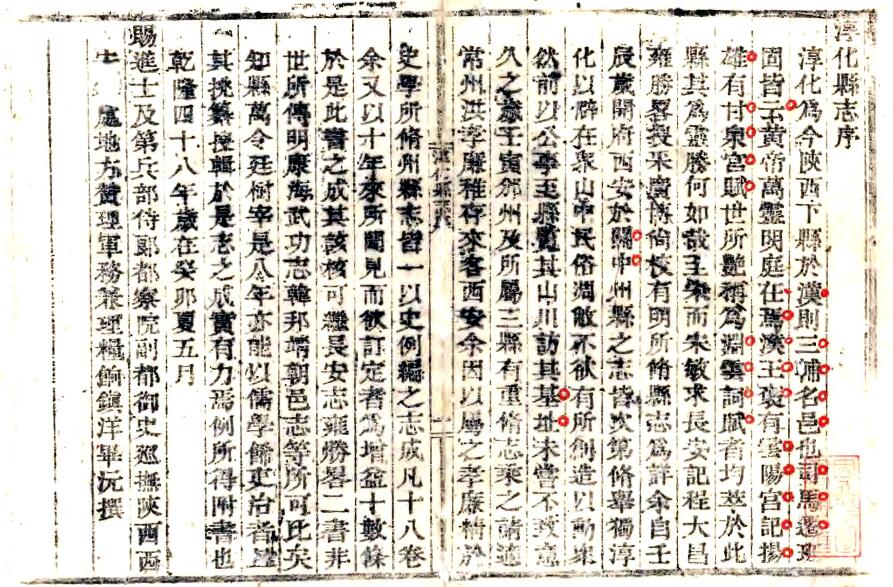 淳化縣志序
淳化為今陜西下縣於漢則三浦名邑也司馬遷班
固皆云黃帝萬靈明庭在焉漢王褒有雲陽宮記揚
雄有甘泉宮賦世所艷稱為淵雲詞賦者均萃於此
縣其為靈勝何如哉王象而宋敏求長安記程大昌
雍勝畧援米廣博尚校有明所脩縣志為詳余自壬
辰歲開府西安於關中州縣之志皆次第脩舉獨淳
化以僻在衆山中民俗凋敝不欲有所創造以動衆
然前以公事至縣覽其山川訪其基址未嘗不致意
久之歲壬寅邠州及所屬三縣有重脩志乘之請適
常州洪孝廉稚存來客西安余因以屬之孝廉精於
史學所脩州縣志皆一以史例編之志成凡十八卷
余又以十年來所聞見而欲訂定者為增益十數條
於是此書之成其該核可繼長安志雍勝畧二書非
世所傳明康海武功志韓邦靖朝邑志等所可比矣
知縣萬令廷樹宰是八年亦能以儒學餙吏治者
其搜輯於是志之成實有力焉例所得附書也
乾隆四十八年歲在癸卯夏五月
賜進士及第兵部侍郎都察院副都御史廵撫陜西西
安處地方贊理軍務兼理糧餉鎮洋畢沅撰
淳化縣志
一